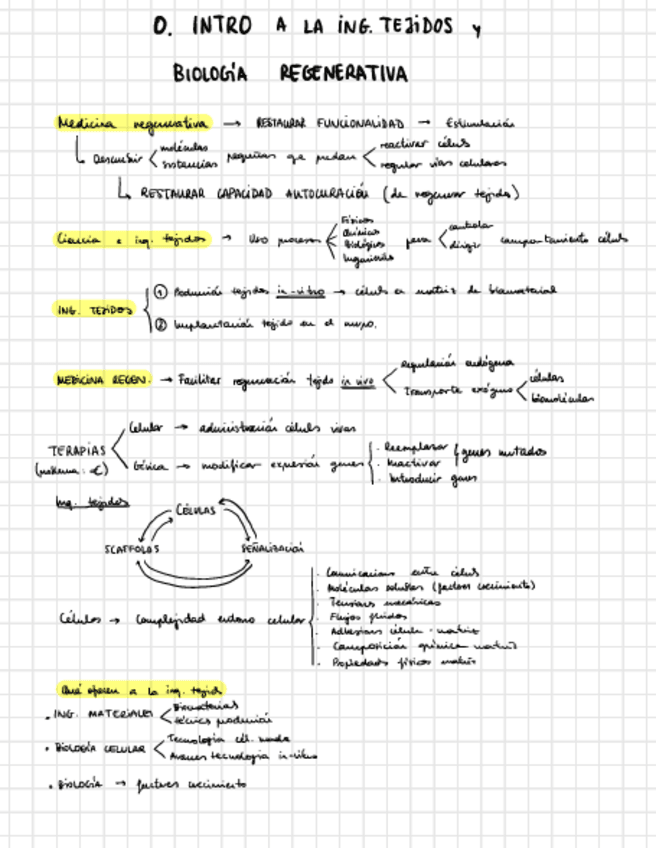 0. INTRO A LA ING. TEJIDOS y
BIOLOGÍA REGENERATIVA
Medicina regenerativa → RESTAURAR FUNCIONALIDAD → Estimulación
Descubrir moléculas sustancias pequeñas que puedan reactivar céluls regular vías celulares
RESTAURAR CAPACIDAD AUTOCURACIÓN (de regenerar tejidos)
Ciencia e ing. tejidos → Uso procesos Físicos Químicos Biológicos Ingeniería para controlar dirigir comportamiento céluls
ING. TEJIDOS
① Producción tejidos in-vitro → céluls en matriz de biomaterial
② Implantación tejido en el cuerpo.
MEDICINA REGEN. → Facilitar regeneración tejido in vivo
Regulación endógena
Transporte exógeno células biomoléculas
TERAPIAS
(problema: €)
Celular → administración céluls vivas
Génica → modificar expresión genes
· Reemplazar
· Inactivar
genes mutados
· Introducir genes
Ing. tejidos
CÉLULAS
SCAFFOLDS SEÑALIZACIÓN
Células → Complejidad entorno celular
· Comunicaciones entre céluls
· Moléculas solubles (factores crecimiento)
· Tensiones mecánicas
· Flujos fluidos
· Adhesiones célula-matriz
· Composición química matriz
· Propiedades físicas matriz
Qué ofrecen a la ing. tejids
· ING. MATERIALES Biomateriales técnicas producción
· BIOLOGÍA CELULAR Tecnología cél. madre Avances tecnología in-vitro
· BIOLOGÍA → factores crecimiento